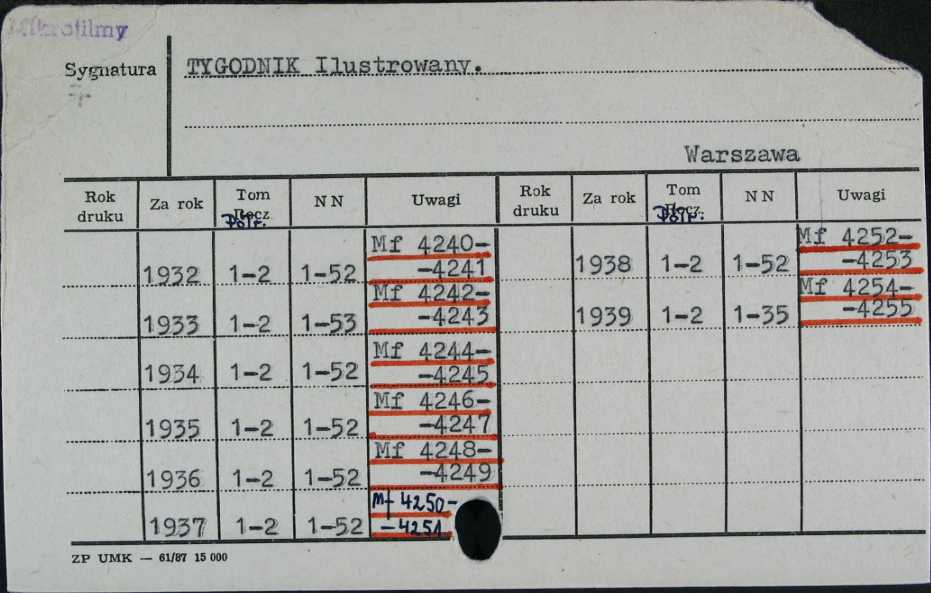 Mikrofilmy
Sygnatura
TYGODNIK Ilustrowany.
Warszawa
Rok druku Za rok Tom Rocz. Półr. N N Uwagi Rok druku Za rok Tom Rocz. Półr. N N Uwagi
1932 1-2 1-52 Mf 4240-
-4241
1933 1-2 1-53 Mf 4242-
-4243
1934 1-2 1-52 Mf 4244-
-4245
1935 1-2 1-52 Mf 4246-
-4247
1936 1-2 1-52 Mf 4248-
-4249
1937 1-2 1-52 Mf 4250-
-4251
1938 1-2 1-52 Mf 4252-
-4253
1939 1-2 1-35 Mf 4254-
-4255
ZP UMK — 61/87 15 000